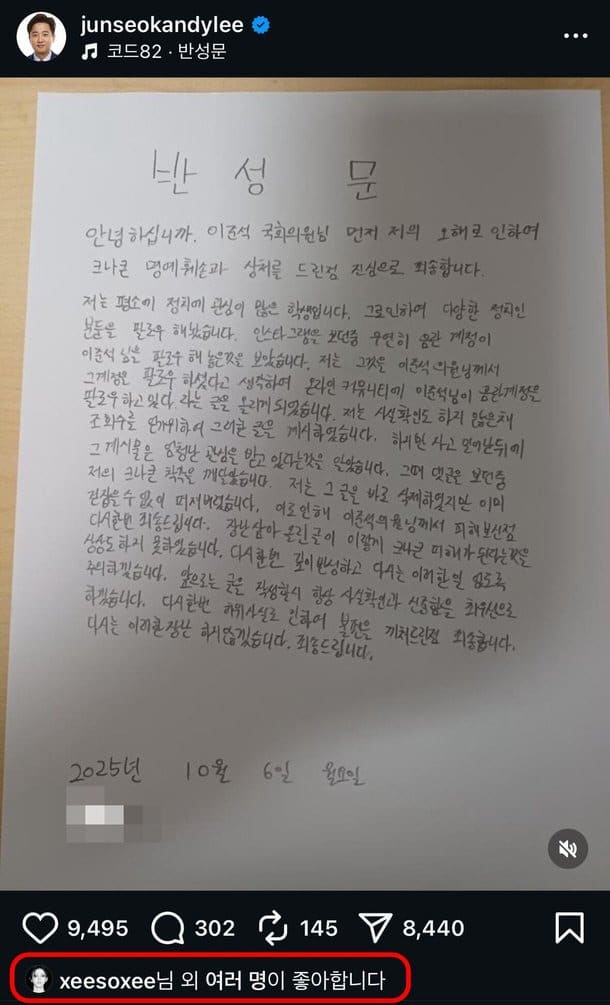 junseokandylee
코드82 · 반성문
반 성 문
안녕하십니까. 이준석 국회의원님 먼저 저의 오해로 인하여
크나큰 명예훼손과 상처를 드린점 진심으로 죄송합니다.
저는 평소에 정치에 관심이 많은 학생입니다. 그로인하여 다양한 정치인
분들을 팔로우 해놨습니다. 인스타그램을 보던중 우연히 음란 계정이
이준석 님을 팔로우 해 놓은것을 보았습니다. 저는 그것을 이준석 의원님께서
그계정을 팔로우 하셨다고 생각하여 온라인 커뮤니티에 이준석님이 음란계정을
팔로우하고있다. 라는 글을 올리게 되었습니다. 저는 사실확인도 하지 않은채
조회수를 얻기위하여 그러한 글을 게시하였습니다. 하지만 자고 일어난뒤에
그 게시물은 엄청난 관심을 받고 있다는것을 알았습니다. 그때 댓글을 보던중
저의 크나큰 착각을 깨달았습니다. 저는 그 글을 바로 삭제하였지만 이미
걷잡을수 없이 퍼져버렸습니다. 이로인해 이준석의원님께서 피해보신점
다시한번 죄송드립니다. 장난삼아 올린글이 이렇게 크나큰 피해가 된다는것을
상상도 하지 못하였습니다. 다시한번 깊이반성하고 다시는 이러한일 없도록
주의하겠습니다. 앞으로는 글을 작성할시 항상 사실확인과 신중함을 최우선으로
하겠습니다. 다시한번 허위사실로 인하여 불편을 끼쳐드린점 죄송합니다.
다시는 이러한장난 하지않겠습니다. 죄송드립니다.
2025년 10월 6일 월요일
9,495 302 145 8,440
xeesoxee님 외 여러 명이 좋아합니다